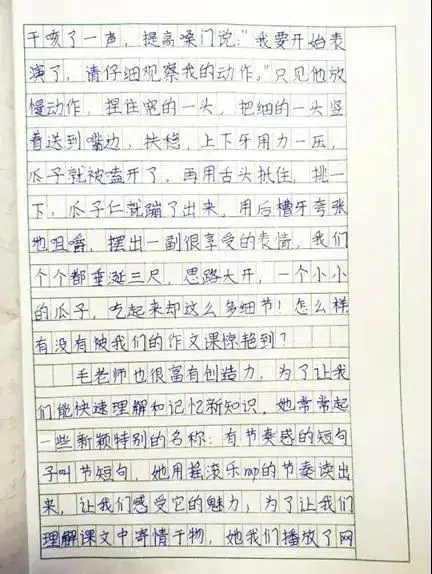 干咳了一声，提高嗓门说："我要开始表
演了，请仔细观察我的动作。"只见他放
慢动作，捏住宽的一头，把细的一头竖
着送到嘴边，扶稳，上下牙用力一压，
瓜子就被嗑开了，再用舌头抵住，挑一
下，瓜子仁就蹦了出来，用后槽牙夸张
地咀嚼，摆出一副很享受的表情，我们
个个都垂涎三尺，思路大开，一个小小
的瓜子，吃起来却这么多细节！怎么样
有没有被我们的作文课惊艳到？
毛老师也很富有创造力，为了让我
们能快速理解和记忆新知识，她常常起
一些新颖特别的名称：有节奏感的短句
子叫节短句，她用摇滚乐rap的节奏读出
来，让我们感受它的魅力，为了让我们
理解课文中寄情于物，她我们播放了网